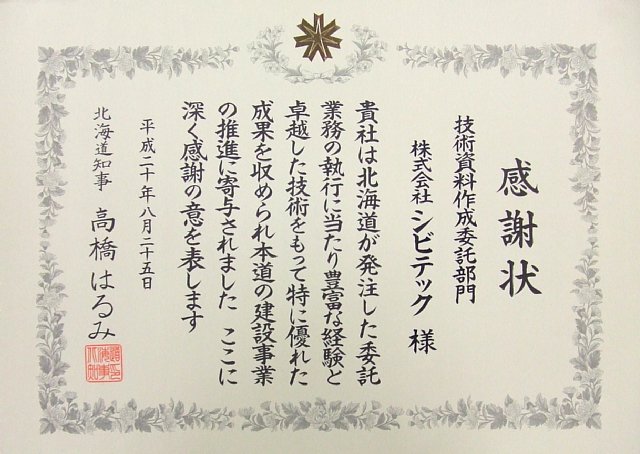 感謝状
技術資料作成委託部門
株式会社 シビテック 様
貴社は北海道が発注した委託
業務の執行に当たり豊富な経験と
卓越した技術をもって特に優れた
成果を収められ本道の建設事業
の推進に寄与されました ここに
深く感謝の意を表します
平成二十年八月二十五日
北海道知事 高橋はるみ